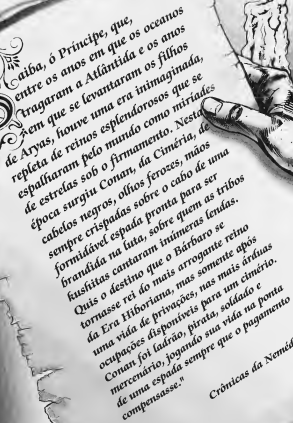 Saiba, ó Príncipe, que,
entre os anos em que os oceanos
tragaram a Atlântida e os anos
em que se levantaram os filhos
de Aryas, houve uma era inimaginada,
repleta de reinos esplendorosos que se
espalharam pelo mundo como miríades
de estrelas sob o firmamento. Nesta
época surgiu Conan, da Ciméria, de
cabelos negros, olhos ferozes, mãos
sempre crispadas sobre o cabo de uma
formidável espada pronta para ser
brandida na luta, sobre quem as tribos
kushitas cantaram inúmeras lendas.
Quis o destino que o Bárbaro se
tornasse rei do mais arrogante reino
da Era Hiboriana, mas somente após
uma vida de privações, nas mais árduas
ocupações disponíveis para um cimério.
Conan foi ladrão, pirata, soldado e
mercenário, jogando sua vida na ponta
de uma espada sempre que o pagamento
compensasse."
Crônicas da Neméd